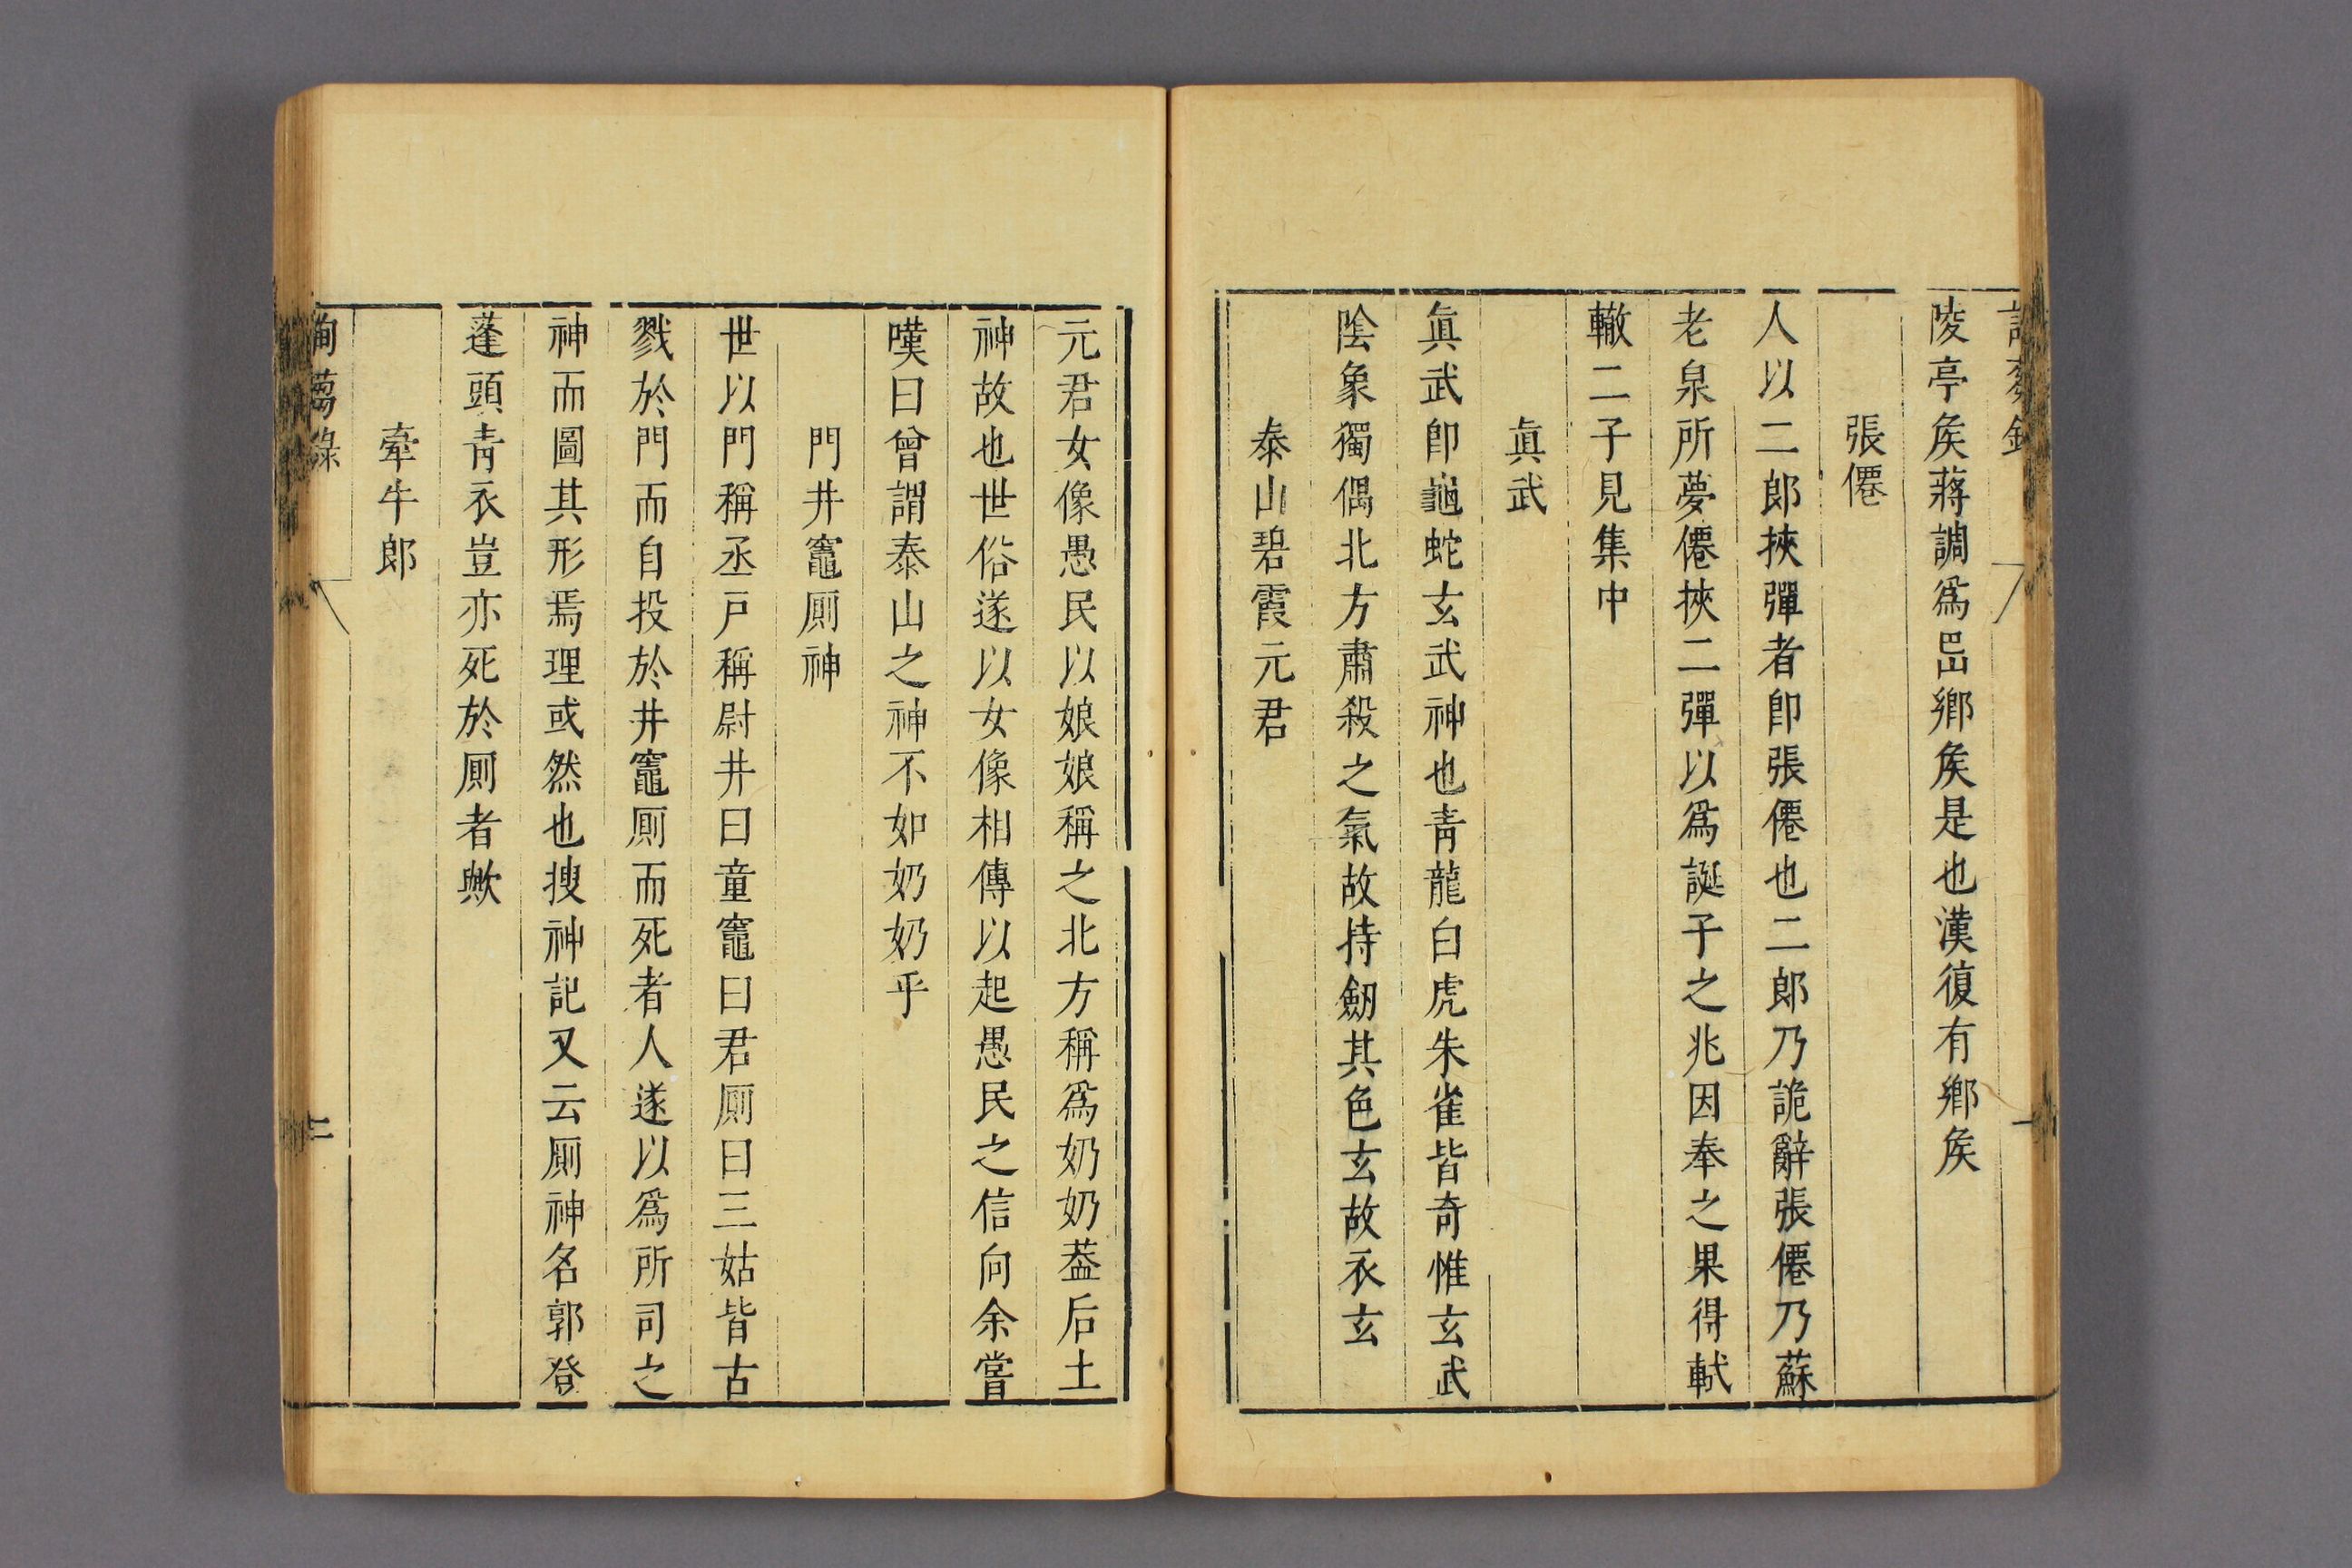 陵亭矦蔣調爲邑鄉矦是也漢復有鄉矦
張僊
人以二郎挾彈者卽張僊也二郎乃詭辭張僊乃蘇
老泉所夢僊挾二彈以爲誕子之兆因奉之果得軾
轍二子見集中
眞武
眞武卽龜蛇玄武神也青龍白虎朱雀皆奇惟玄武
陰象獨偶北方肅殺之氣故持劒其色玄故衣玄
泰山碧霞元君
元君女像愚民以娘娘稱之北方稱爲奶奶葢后土
神故也世俗遂以女像相傳以起愚民之信向余嘗
嘆曰曾謂泰山之神不如奶奶乎
門井竈厠神
世以門稱丞戸稱尉井曰童竈曰君厠曰三姑皆古
戮於門而自投於井竈厠而死者人遂以爲所司之
神而圖其形焉理或然也搜神記又云厠神名郭登
蓬頭青衣豈亦死於厠者歟
牽牛郎